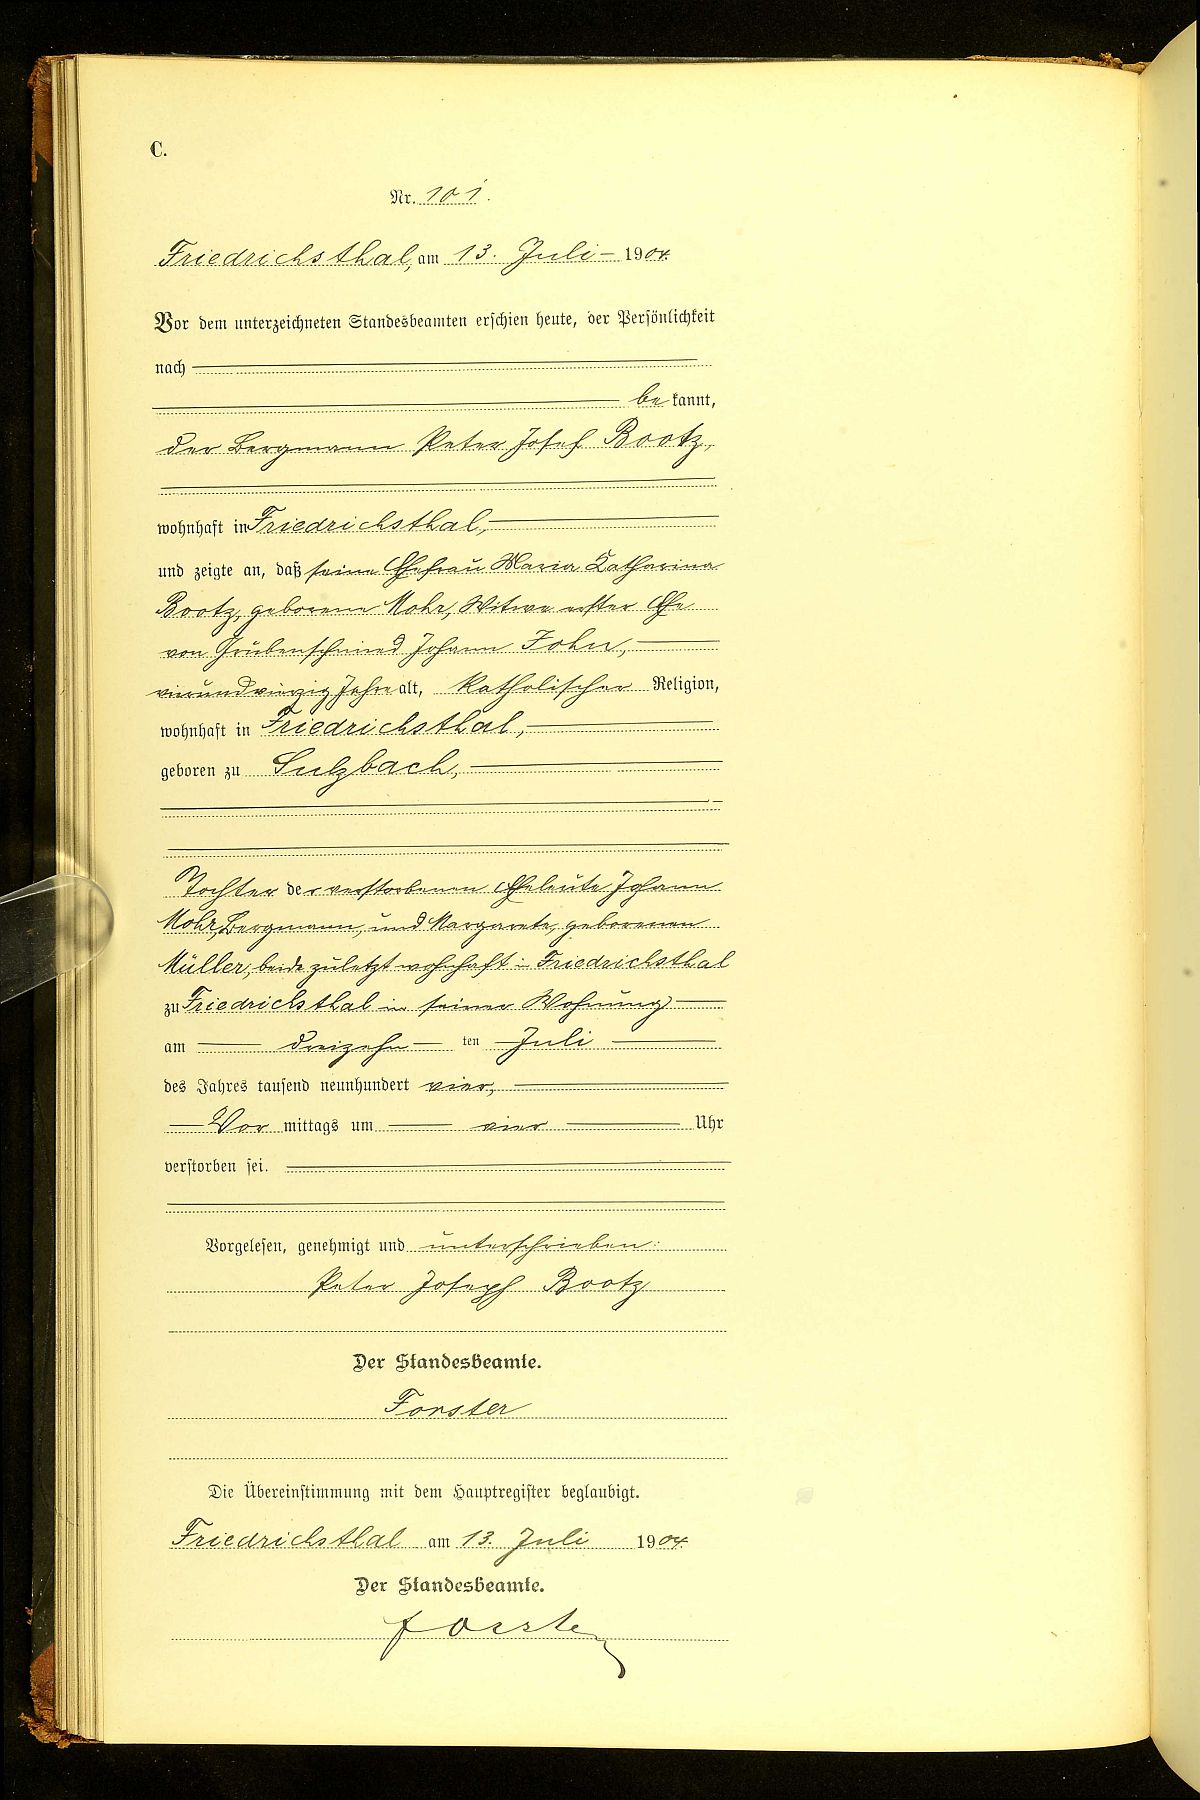 C.
Nr. 101.
Friedrichsthal, am 13. Juli 1904.
Vor dem unterzeichneten Standesbeamten erschien heute, der Persönlichkeit
nach
bekannt,
der Bergmann Peter Josef Bootz,
wohnhaft in Friedrichsthal,
und zeigte an, daß seine Ehefrau Maria Katharina
Bootz, geborene Mohr, Witwe erster Ehe
von Grubenschmied Johann John,
vierundvierzig Jahre alt, katholischer Religion,
wohnhaft in Friedrichsthal,
geboren zu Sulzbach,
Tochter der verstorbenen Eheleute Johann
Mohr, Bergmann, und Margareta, geborenen
Müller, beide zuletzt wohnhaft in Friedrichsthal
zu Friedrichsthal in seiner Wohnung
am dreizehnten Juli
des Jahres tausend neunhundert vier,
Vormittags um vier Uhr
verstorben sei.
Vorgelesen, genehmigt und unterschrieben:
Peter Joseph Bootz
Der Standesbeamte.
Forster
Die Übereinstimmung mit dem Hauptregister beglaubigt.
Friedrichsthal am 13. Juli 1904.
Der Standesbeamte.
Forster